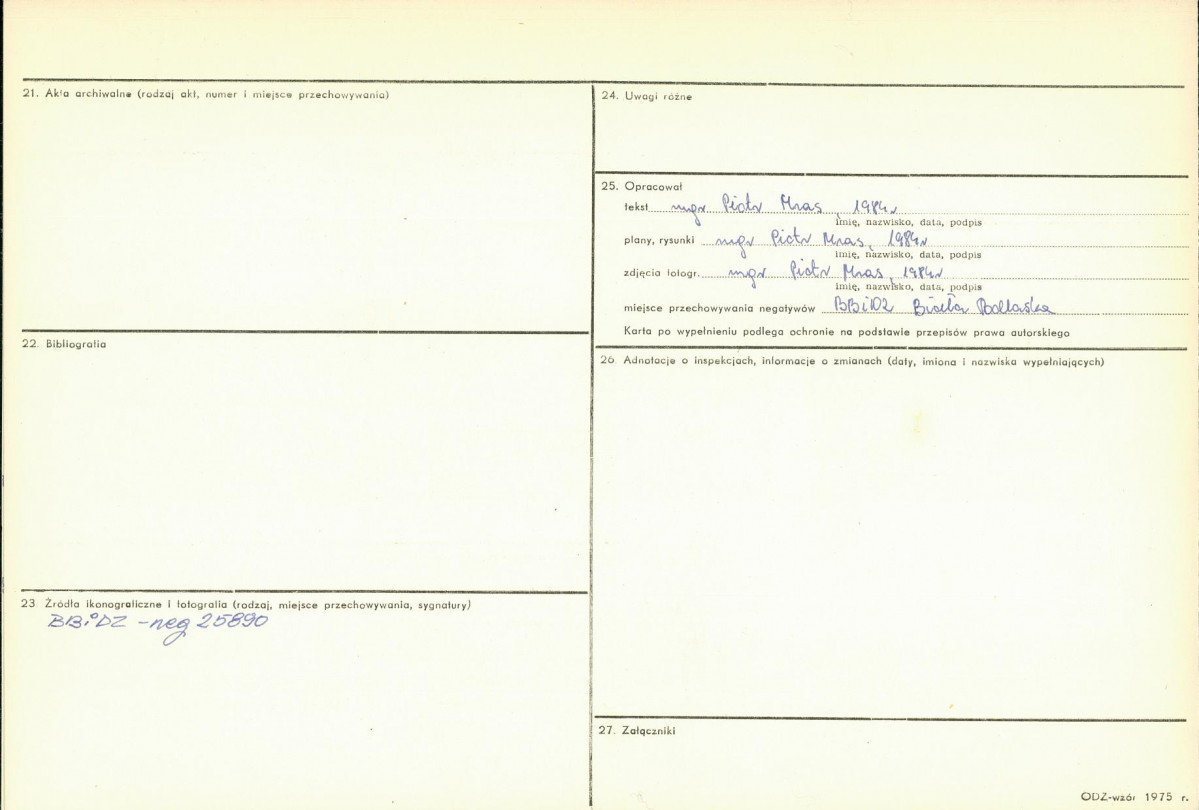 21. Akta archiwalne (rodzaj akt, numer i miejsce przechowywania)
22. Bibliografia
23 Źródła ikonograficzne i fotografia (rodzaj, miejsce przechowywania, sygnatury)
BBiDZ - neg 25890
24. Uwagi różne
25. Opracował
tekst mgr Piotr Mras, 1984r
imię, nazwisko, data, podpis
plany, rysunki mgr Piotr Mras, 1984r
imię, nazwisko, data, podpis
zdjęcia fotogr. mgr Piotr Mras, 1984r
imię, nazwisko, data, podpis
miejsce przechowywania negatywów BBiDZ Biała Podlaska
Karta po wypełnieniu podlega ochronie na podstawie przepisów prawa autorskiego
26. Adnotacje o inspekcjach, informacje o zmianach (daty, imiona i nazwiska wypełniających)
27. Załączniki
ODZ-wzór 1975 r.